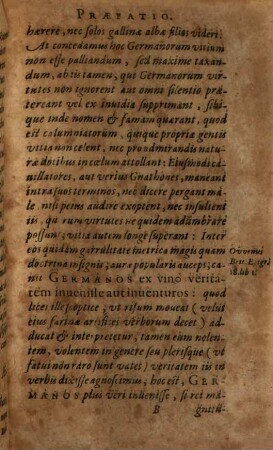 PRÆFATIO.
hærere, nec solos gallinæ albæ filios videri:
At concedamus hoc Germanorum vitium
non esse palliandum, sed maxime taxan-
dum, absistamen; qui Germanorum vir-
tutes non ignorent aut omni silentio præ-
tereant vel ex inuidia supprimant, sibi-
que inde nomen & famam quærant, quod
est calumniatorum, quique propriæ gentis
vitia non celent, nec pro admirandis natu-
ræ dotibus in cœlum attollant: Eiusmodi ca-
uillatores, aut verius Gnathones, maneant
intra suos terminos, nec dicere pergant ma-
le nisi peius audire exoptent, nec insultent
iis, quorum virtutes ne quidem adumbrare
possunt; vitia autem longe superant: Inter
eos quidam garrulitate metrica magis quam
doctrina insignis, auræ popularis auceps, ca-
nit GERMANOS ex vino verita-
tem inuenisse aut inuenturos: quod
licet ille scoptice (vt risum moueat (velut
eius farinæ artifices verborum decet) ad-
ducat & interpretetur, tamen eum nolen-
tem, volentem in genere seu plerisque (vt
fatui non raro sunt vates) veritatem iis
in verbis dixisse agnoscimus, hoc est, GER-
MANOS plus veri inuenisse, si ret ma-
B gnitu-
Ovvenius
Brit. Epigr.
lib 1.